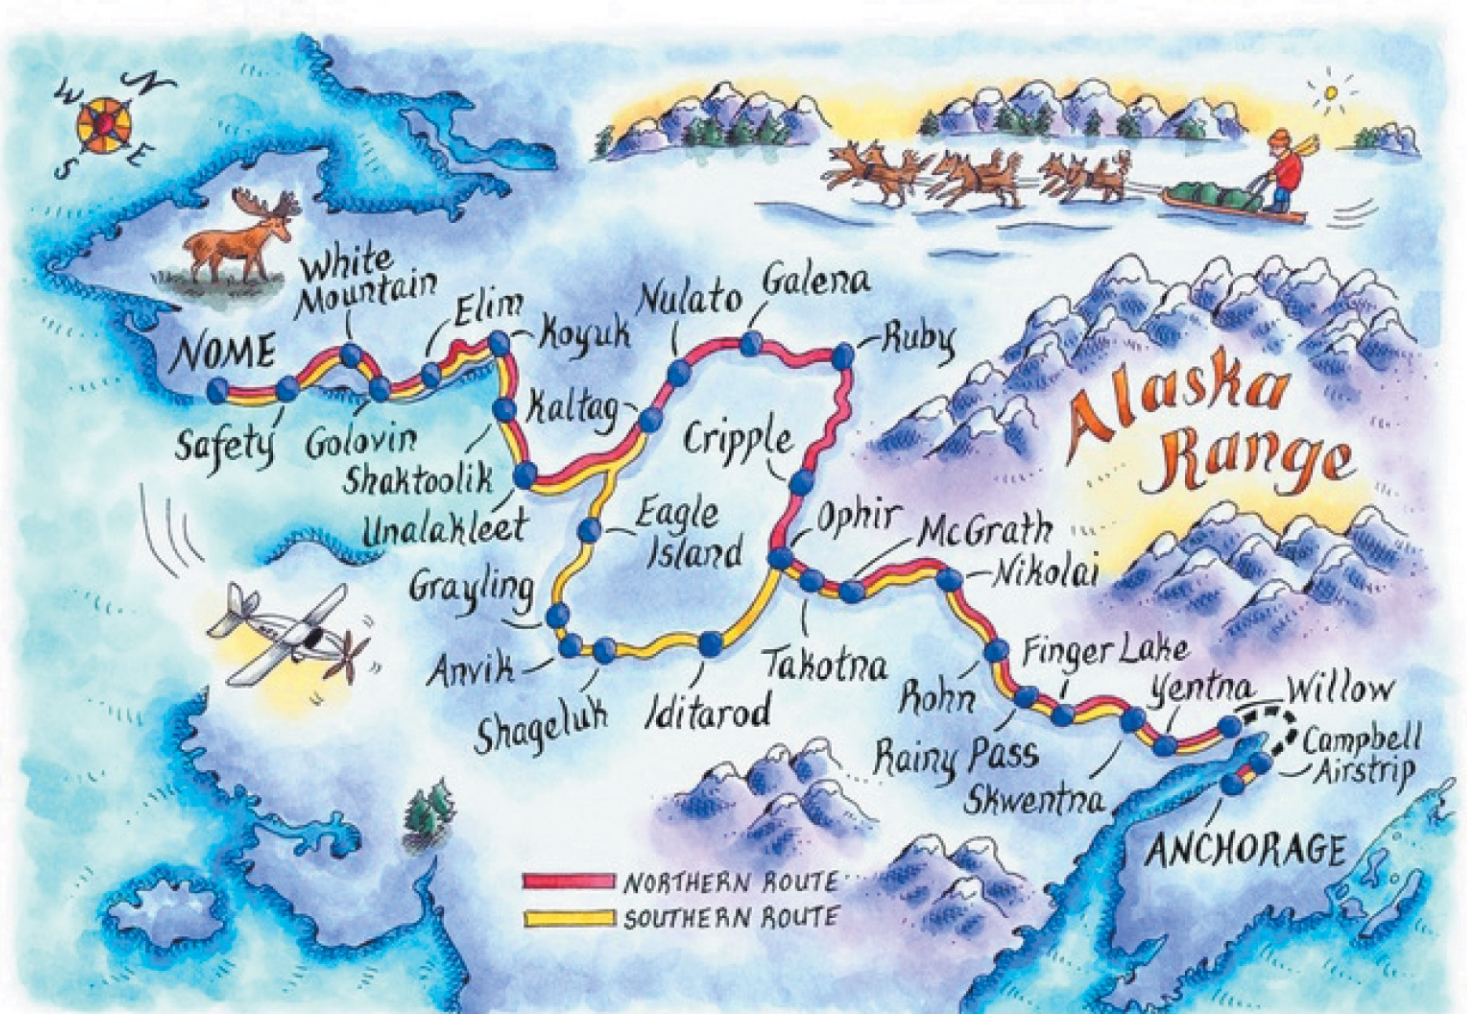 N
W
E
S
White
Mountain
Elim
NOME
Koyuk
Nulato
Galena
Ruby
Safety
Golovin
Shaktoolik
Unalakleet
Kaltag
Cripple
Eagle
Island
Ophir
McGrath
Nikolai
Alaska
Range
Grayling
Anvik
Shageluk
Iditarod
Takotna
Rohn
Finger Lake
Yentna
Willow
Rainy Pass
Skwentna
Campbell
Airstrip
ANCHORAGE
NORTHERN ROUTE
SOUTHERN ROUTE